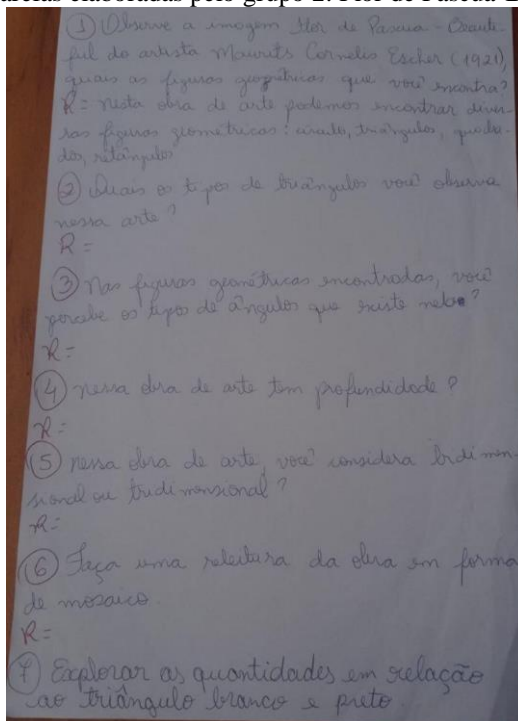 ① Observe a imagem Flor de Pascua - Beauti-
ful do artista Maurits Cornelis Escher (1921),
quais as figuras geométricas que você encontra?
R = nesta obra de arte podemos encontrar diver-
sas figuras geometricas: circulo, triângulos, quadra-
dos, retângulos
② Quais os tipos de triângulos você observa
nessa arte?
R =
③ Nas figuras geométricas encontradas, você
percebe os tipos de ângulos que existe nela?
R =
④ nessa obra de arte tem profundidade?
R =
⑤ nessa obra de arte, você considera bidimen-
sional ou tridimensional?
R =
⑥ Faça uma releitura da obra em forma
de mosaico.
R =
⑦ Explorar as quantidades em relação
ao triângulo branco e preto.